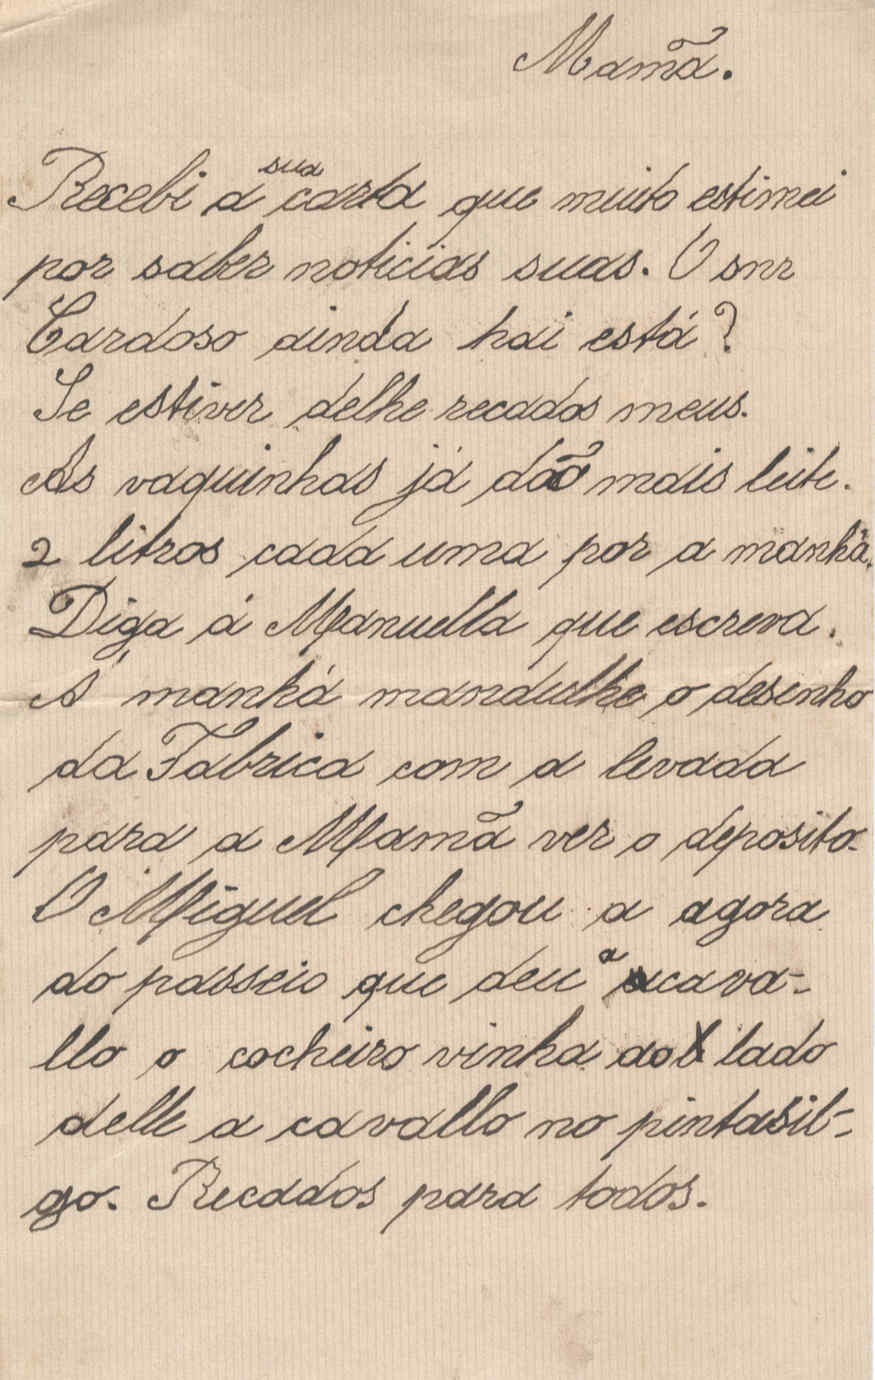 Mamã.
Recebi a sua carta que muito estimei
por saber noticias suas. O snr
Cardoso ainda hai está?
Se estiver delhe recados meus.
As vaquinhas já dão mais leite.
2 litros cada uma por a manhã.
Diga á Manuella que escreva.
A' manhá mandulhe o desenho
da Fabrica com a levada
para a Mamã ver o deposito.
O Miguel chegou a agora
do passeio que deu a cava-
llo o cocheiro vinha ao lado
delle a cavallo no pintasil-
go. Recados para todos.